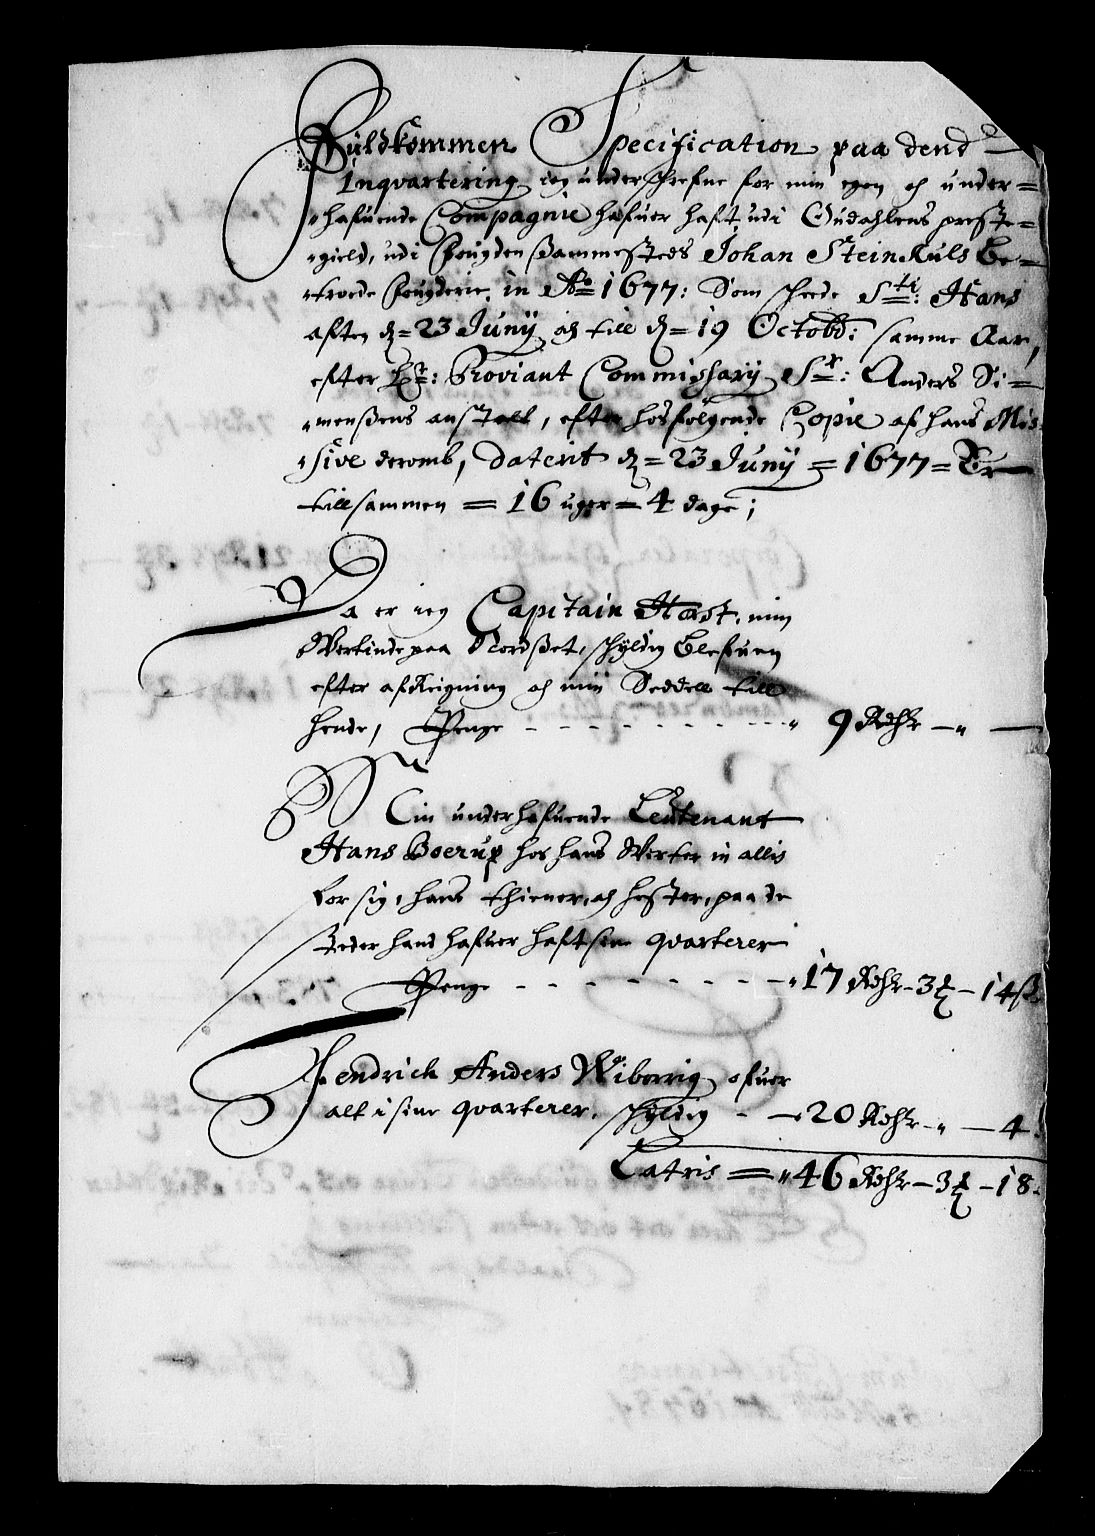 Fuldkommen Specification paa dend
Inqvartering ieg underschrefne for min egen och under=
hafuende Compagnie hafuer haft udi Gudahlens preste=
gield, udi Fougden sammesteds Johan Stein Kuls be=
troede Fougderie, in Ao 1677: Som scheede Sti: Hans
aften d= 23 Junij och till d= 19 Octobb: samme Aar,
efter Hr: Proviant Commissarij Sr: Anders Si=
mensens anstalt, efter hosfølgende Copie af hans Mis=
sive deromb, daterit d= 23 Junij = 1677 = Er
tillsammen = 16 uger = 4 dage;
Da er ieg Capitain Hast, min
Wertinde paa Nordset, schyldig blefuen
efter afReigning och min Seddell till
hende, Penge - - - - - - - - - " 9 Rdhr — " —
Min underhafuende Leutenant
Hans Boerup hos hans Werter in allis
for sig, hans thiener, och hester, paa de
steder hand hafuer haft sine qvarterer
Penge - - - - - - - - - " 17 Rdhr – 3 – 14 ß
Fendrich Anders Wiborrig ofuer
alt i sine qvarterer, schyldig - — 20 Rdhr – " — 4
Latris = " 46 Rdhr – 3 – 18